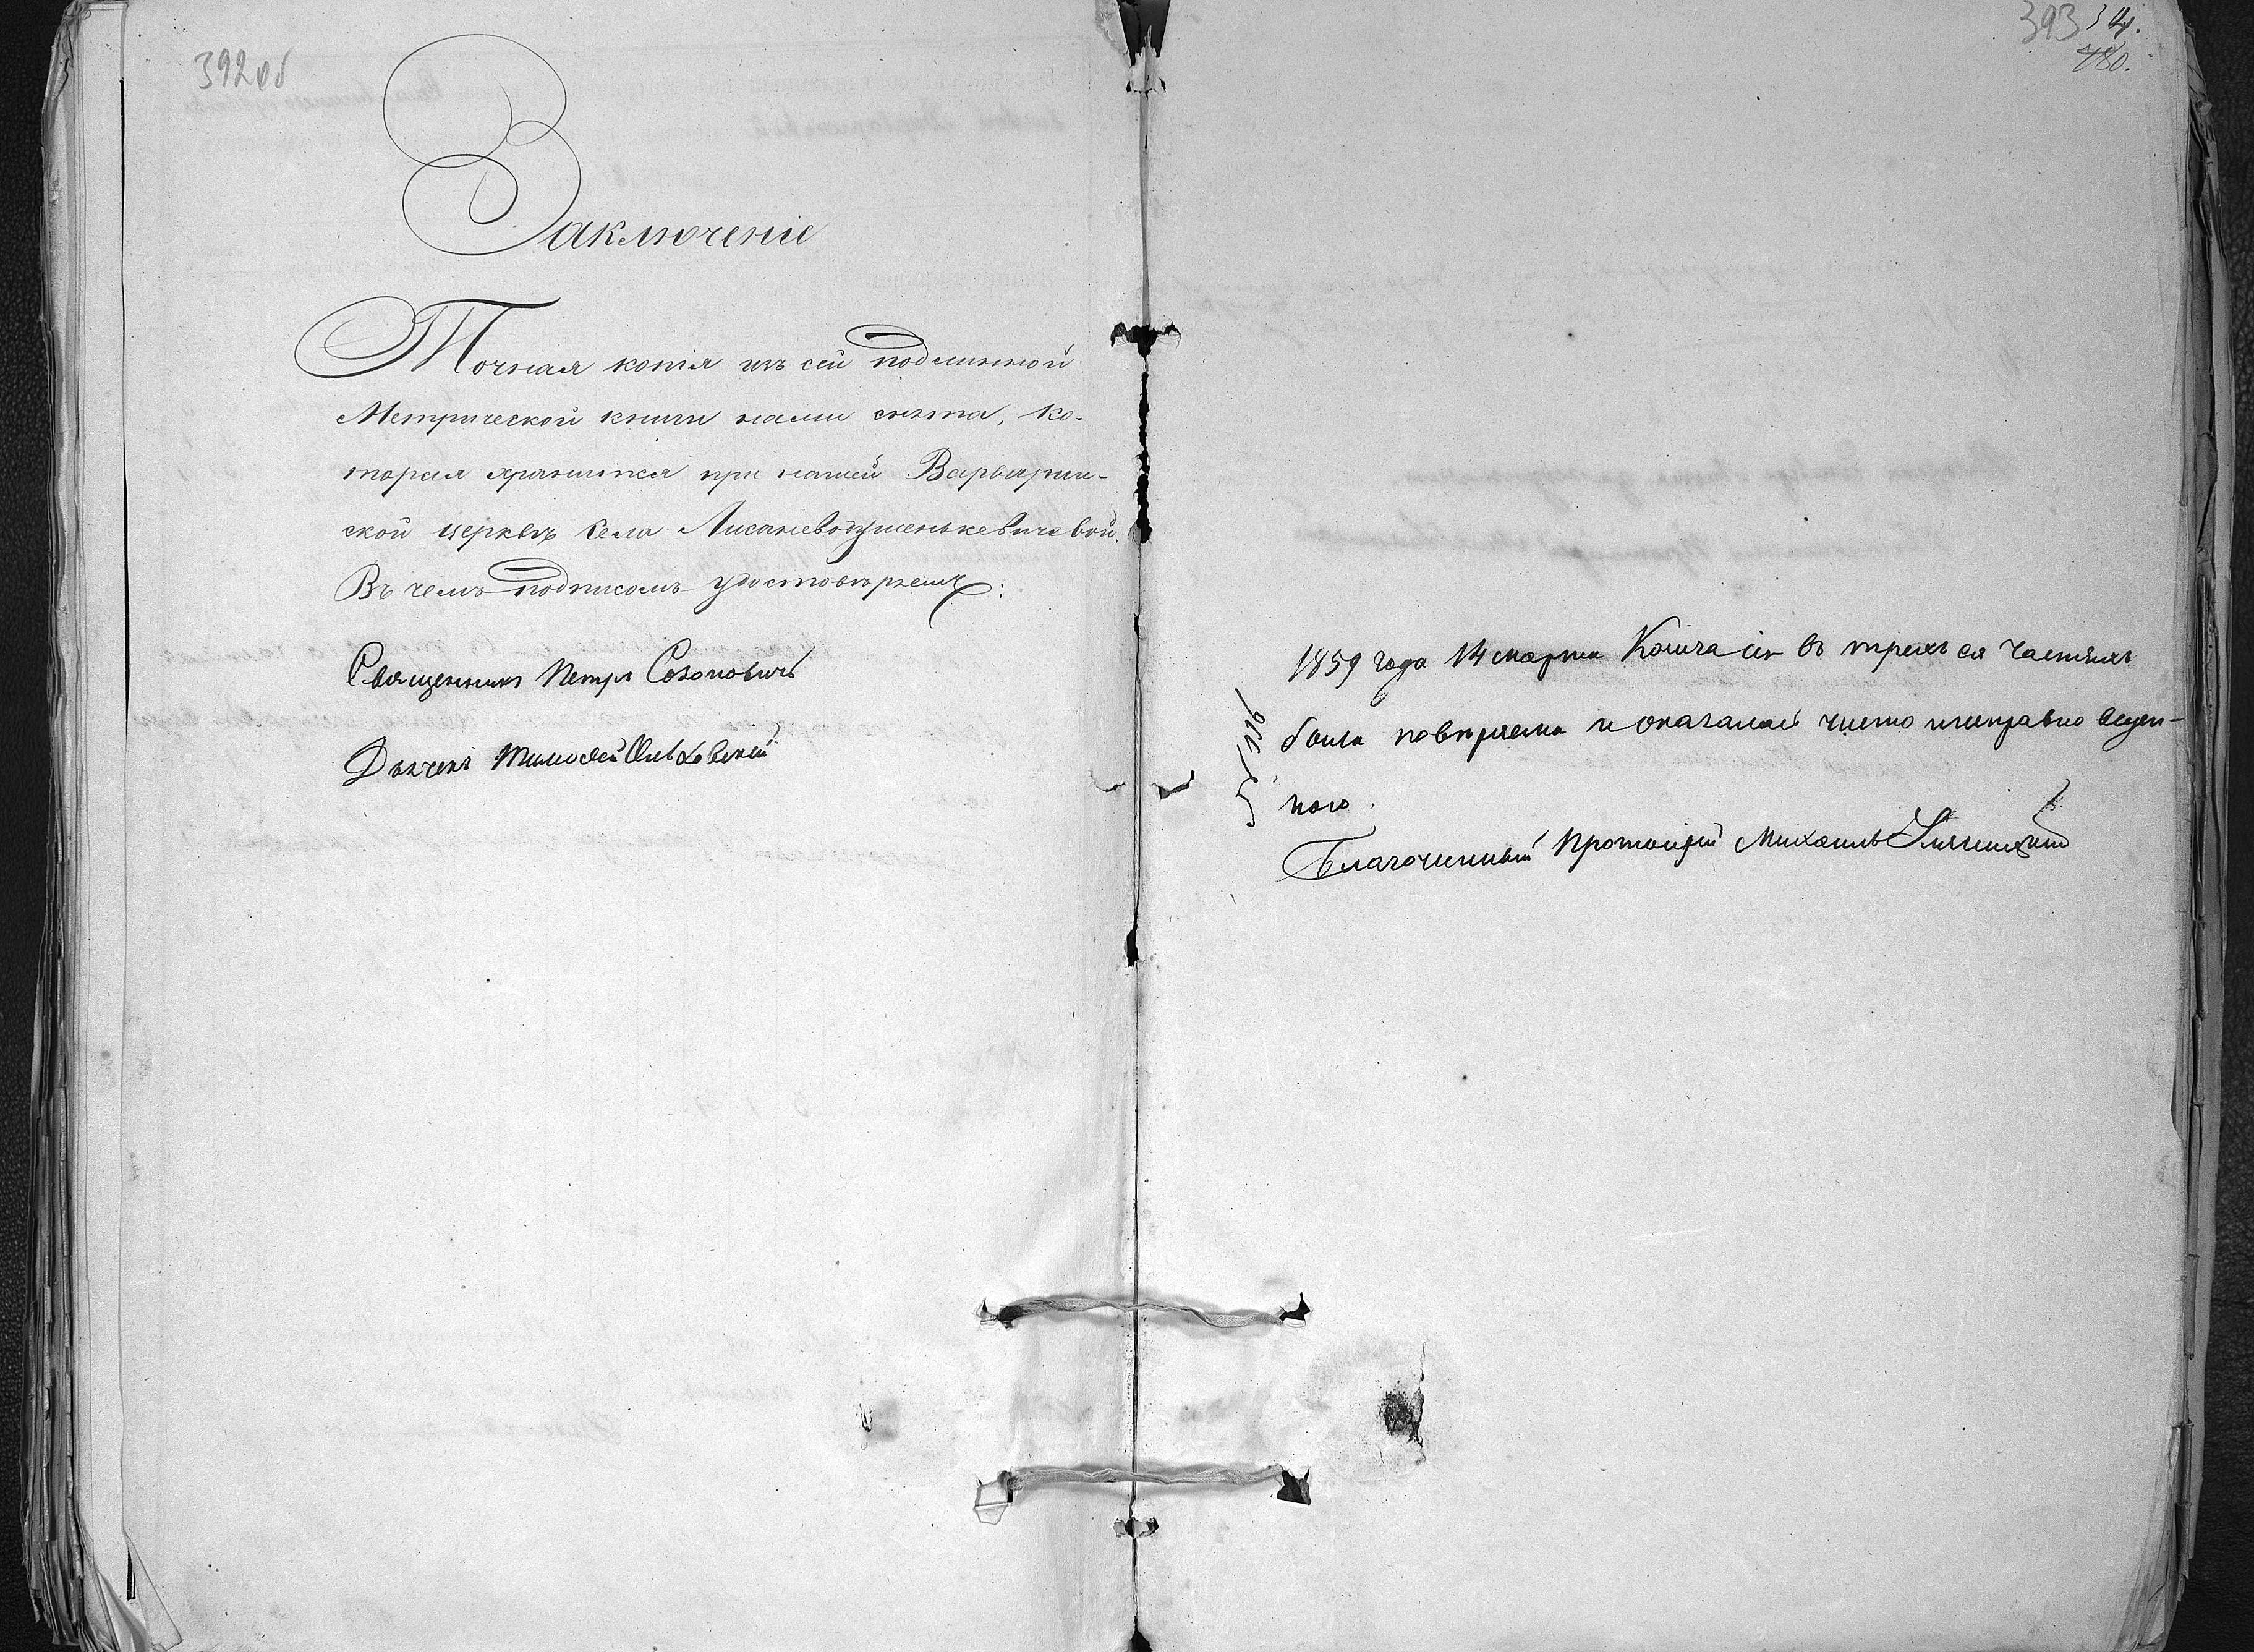 392 об
Заключеніе
Точная копія изъ сей подлинной
Метрической книги нами снята, ко-
торая хранится при нашей Варварин-
ской церквѣ села
Въ чемъ подписомъ удостовѣряемъ:
Священникъ Петръ Созоновичъ
Дьячекъ Тимофей
393 34.
180.
1859 года 14 марта Книга сія въ трехъ ея частяхъ
была повѣряема и оказалась чисто и исправно веден-
ною.
Благочинный Протоіерей Михаилъ